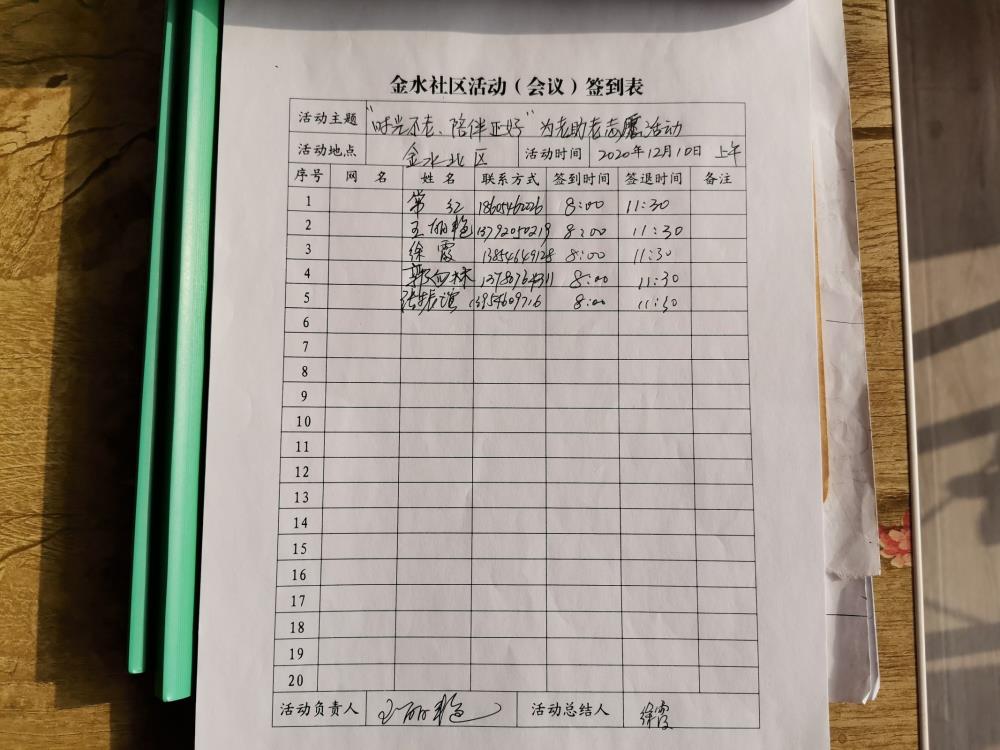 金水社区活动（会议）签到表
活动主题 "时光不老、陪伴正好"为老助老志愿活动
活动地点 金水北区 活动时间 2020年12月10日 上午
序号 网名 姓名 联系方式 签到时间 签退时间 备注
1 常红 18605462026 8:00 11:30
2 王丽艳 13792050219 8:00 11:30
3 徐霞 13854649128 8:00 11:30
4 8:00 11:30
5 张振滨 13954609716 8:00 11:30
6
7
8
9
10
11
12
13
14
15
16
17
18
19
20
活动负责人 王丽艳 活动总结人 徐霞